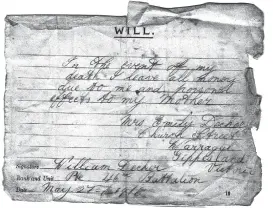 WILL.
In the event of my
death I leave all money
due to me and personal
effects to my Mother
Mrs Emily Decker
Church Street
Warragul
Gippsland
Signature William Decker
Rank and Unit Pte 46th Battalion
Date May 27
19